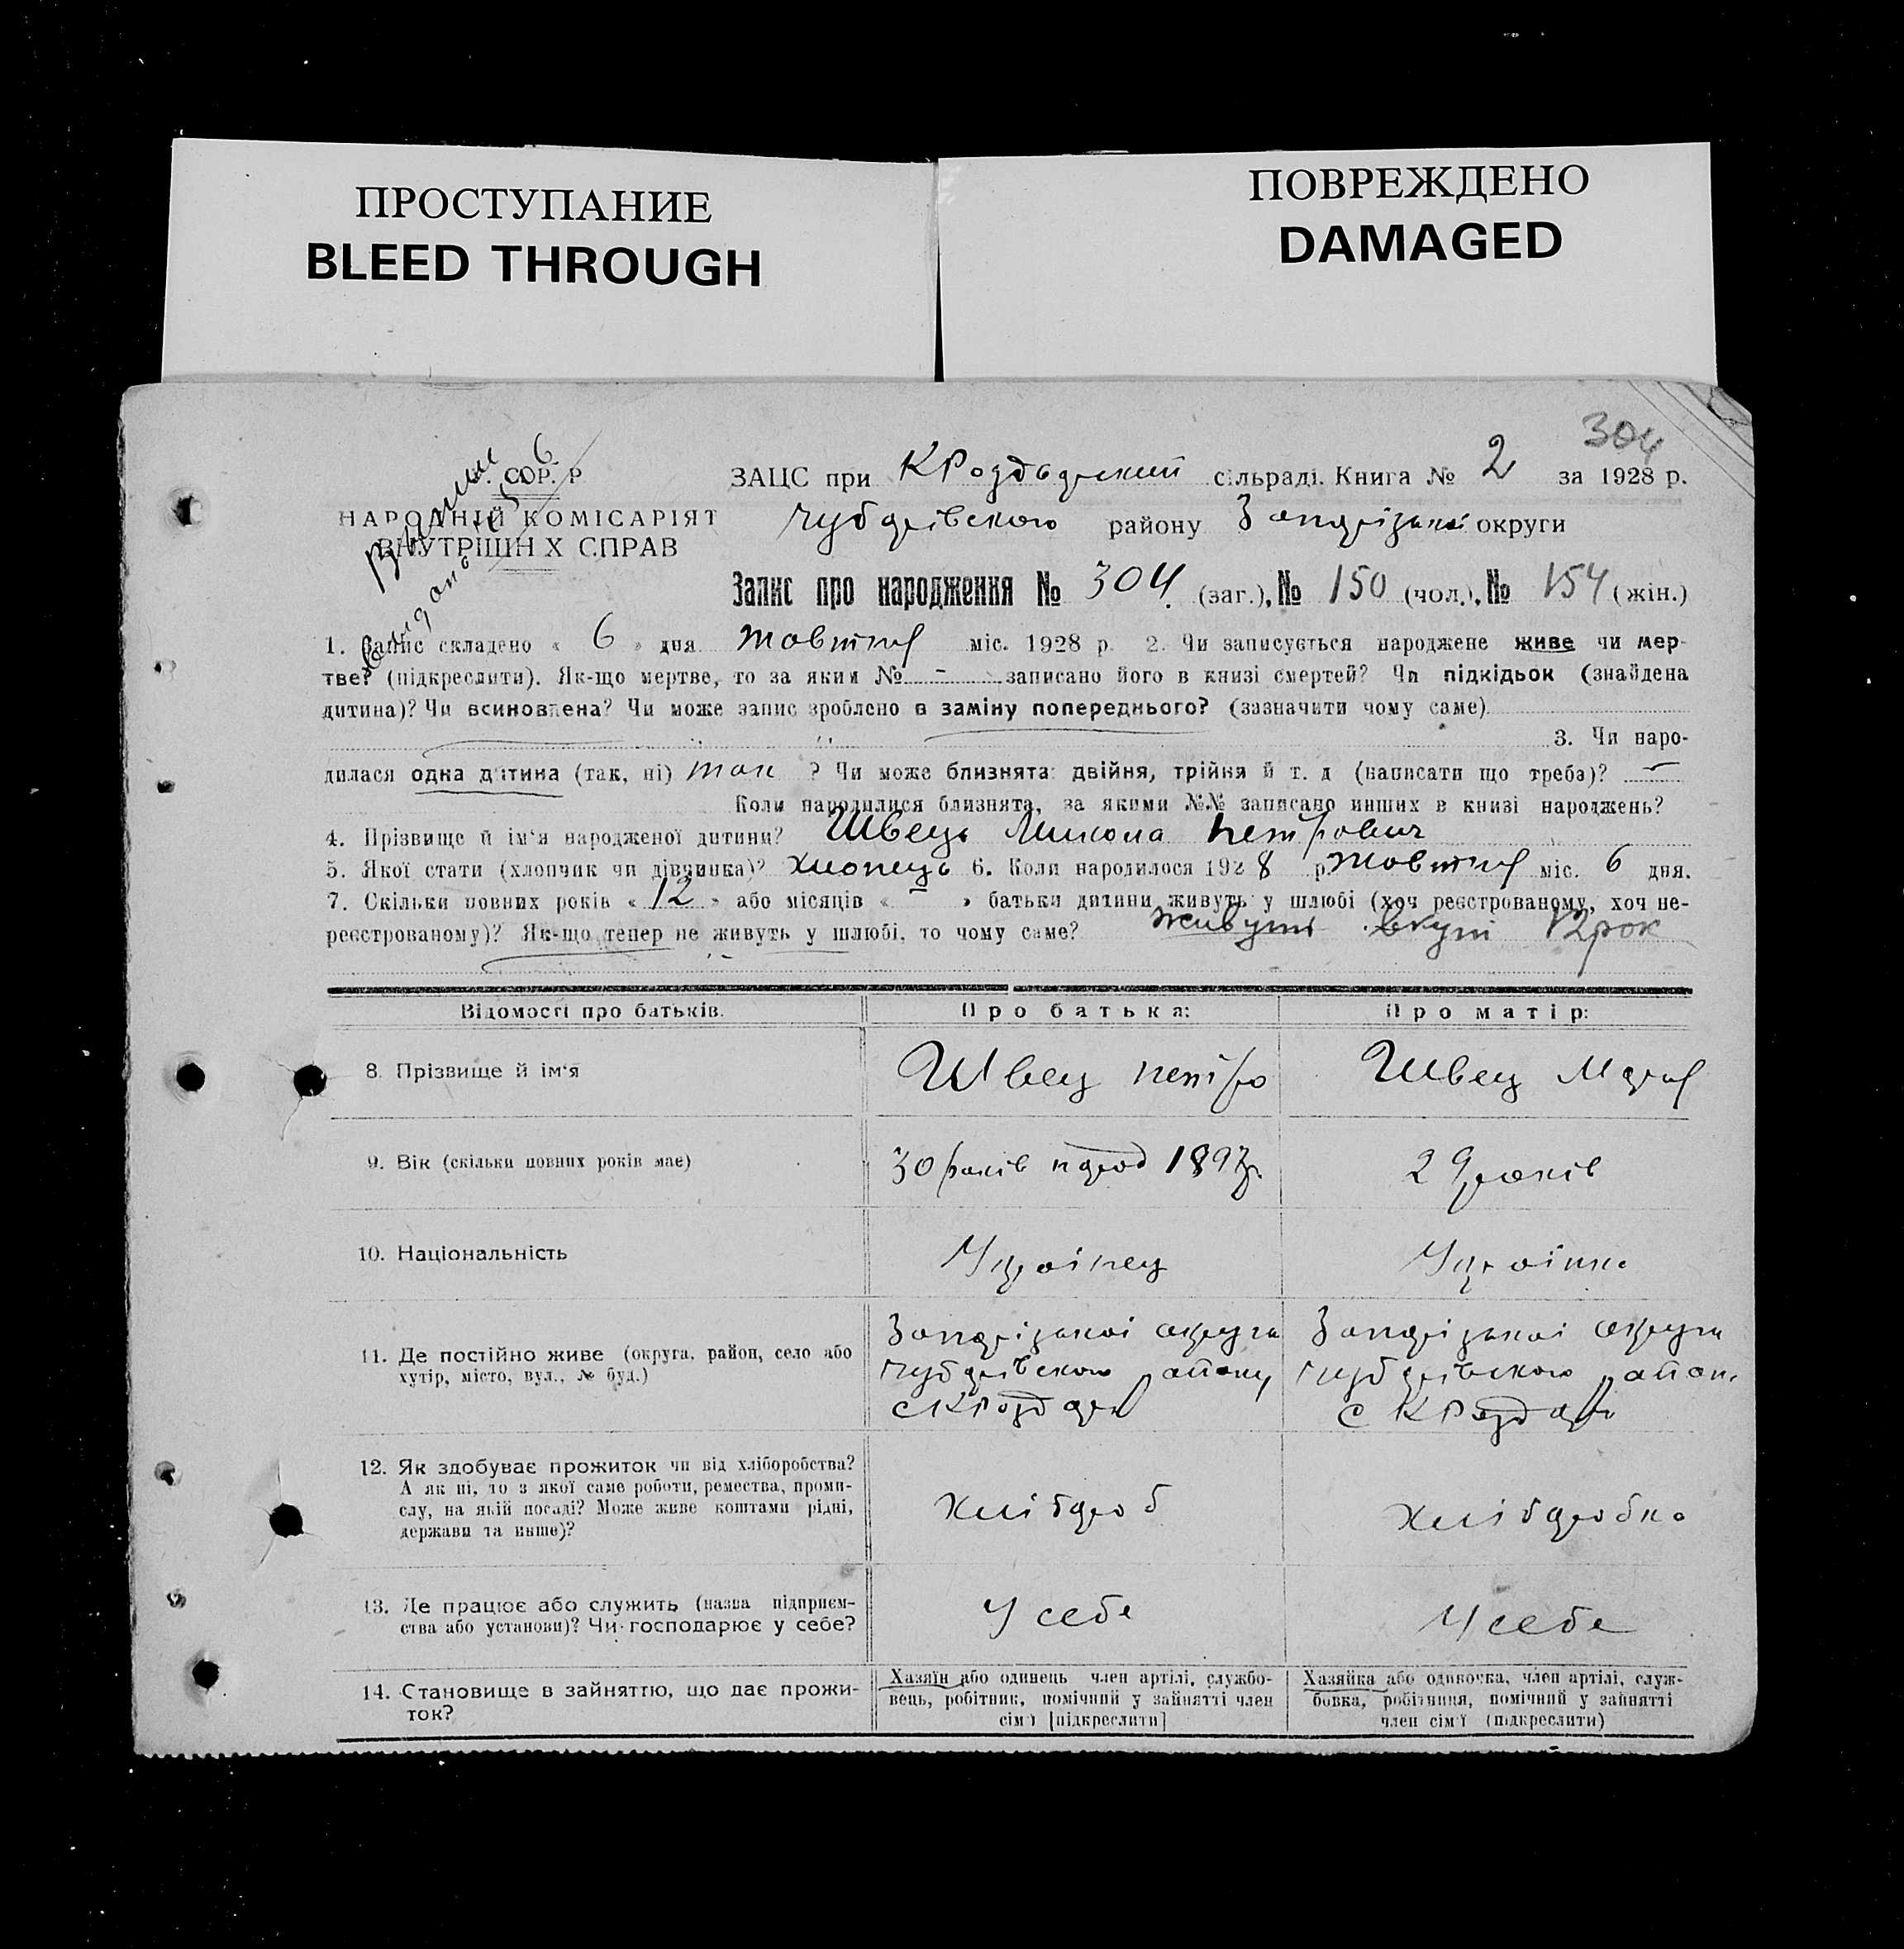 ПРОСТУПАНИЕ
BLEED THROUGH
ПОВРЕЖДЕНО
DAMAGED
304
. СОР. Р
НАРОДНІЙ КОМІСАРІЯТ
ВНУТРІШН Х СПРАВ
ЗАЦС при сільраді. Книга № 2 за 1928 р.
району округи
Запис про народження № 304. (заг.), № 150 (чол.), № 154 (жін.)
1. Запис складено « 6 » дня жовтня міс. 1928 р. 2. Чи записується народжене живе чи мер-
тве? (підкреслити). Як-що мертве, то за яким № - записано його в книзі смертей? Чи підкідьок (знайдена
дитина)? Чи всиновлена? Чи може запис зроблено в заміну попереднього? (зазначити чому саме)
3. Чи наро-
дилася одна дитина (так, ні) так ? Чи може близнята: двійня, трійня й т. д (написати що треба)?
Коли народилися близнята, за якими №№ записано инших в книзі народжень?
4. Прізвище й ім'я народженої дитини? Швець Микола Петрович
5. Якої стати (хлопчик чи дівчинка)? хлопець 6. Коли народилося 1928 р. жовтня міс. 6 дня.
7. Скільки повних років « 12 » або місяців « - » батьки дитини живуть у шлюбі (хоч реєстрованому, хоч не-
реєстрованому)? Як-що тепер не живуть у шлюбі, то чому саме? живуть вкупі 12 рок
Відомості про батьків. Про батька: Про матір:
8. Прізвище й ім'я Швец Петро Швец Марія
9. Вік (скільки повних років має) 30 років народ 1897р. 29 років
10. Національність Українец Українка
11. Де постійно живе (округа, район, село або
хутір, місто, вул., № буд.)
12. Як здобуває прожиток чи від хліборобства?
А як ні, то з якої саме роботи, ремества, проми-
слу, на якій посаді? Може живе коштами рідні,
держави та инше)?
Хлібороб Хліборобка
13. Де працює або служить (назва підприєм-
ства або установи)? Чи господарює у себе?
У себе У себе
14. Становище в зайняттю, що дає прожи-
ток?
Хазяїн або одинець член артілі, службо-
вець, робітник, помічний у зайнятті член
сім'ї [підкреслити]
Хазяйка або одиночка, член артілі, служ-
бовка, робітниця, помічний у зайнятті
член сім'ї (підкреслити)